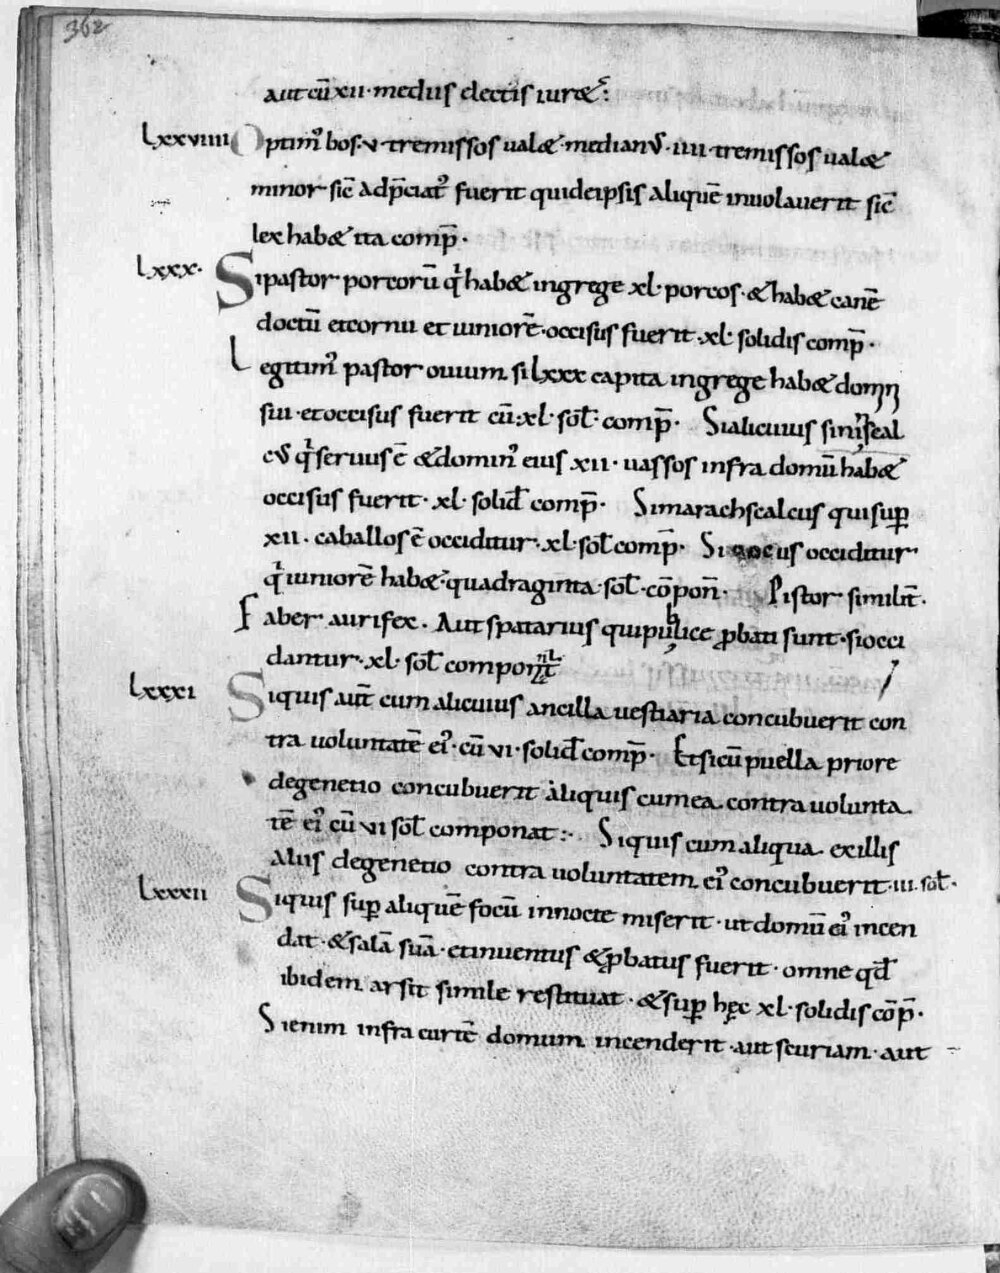 362
aut cū xii· mediis electis iuret:
Lxxviiii Optim᷒ bos·v·tremissos ualet·medianus·iiii·tremissos ualet
minor·sic̄ adp̄ciat᷒ fuerit quideipsis aliquē inuolauerit sic̄
lex habet ita comp̄·
Lxxx· Si pastor porcorū qͥ habet ingrege xl·porcos·& habet canē
doctū et cornu et iuniorē·occisus fuerit·xl·solidis comp̄·
Legitim᷒ pastor ouium si Lxxx capita ingrege habet domni
sui·et occisus fuerit cū·xl·sol̄·comp̄· Si alicuius siniscal
cus qͥ seruus ē & domin᷒ eius xii·uassos infra domū habet
occisus fuerit·xl·solid̄ comp̄· Si marachscalcus qui sup̄
xii·caballos ē occiditur·xl·sol̄ comp̄· Si cocus occiditur
qͥ iuniorē habet·quadraginta·sol̄·cōpon̄· Pistor similit̄·
Faber aurifex·Aut spatarius qui puplice ꝓbati sunt·si occi
dantur·xl·sol̄ compon̄t
Lxxxi Siquis aut̄ cum alicuius ancilla uestiaria concubuerit con
tra uoluntatē ei᷒·cū vi·solid̄ comp̄· Et si cū puella priore
de genetio concubuerit aliquis cum ea contra uolunta
tē ei᷒ cū vi sol̄ componat:· Siquis cum aliqua ex illis
aliis de genetio contra uoluntatem ei᷒ concubuerit·iii·sol̄·
Lxxxii Siquis sup̄ aliquē focū innocte miserit·ut domū ei᷒ incen
dat·& salā suā·et inuentus & ꝓbatus fuerit·omne qd̄
ibidem arsit simile restituat·& sup̄ hęc xl·solidis cōp̄·
Si enim infra curtē domum incenderit·aut scuriam·aut